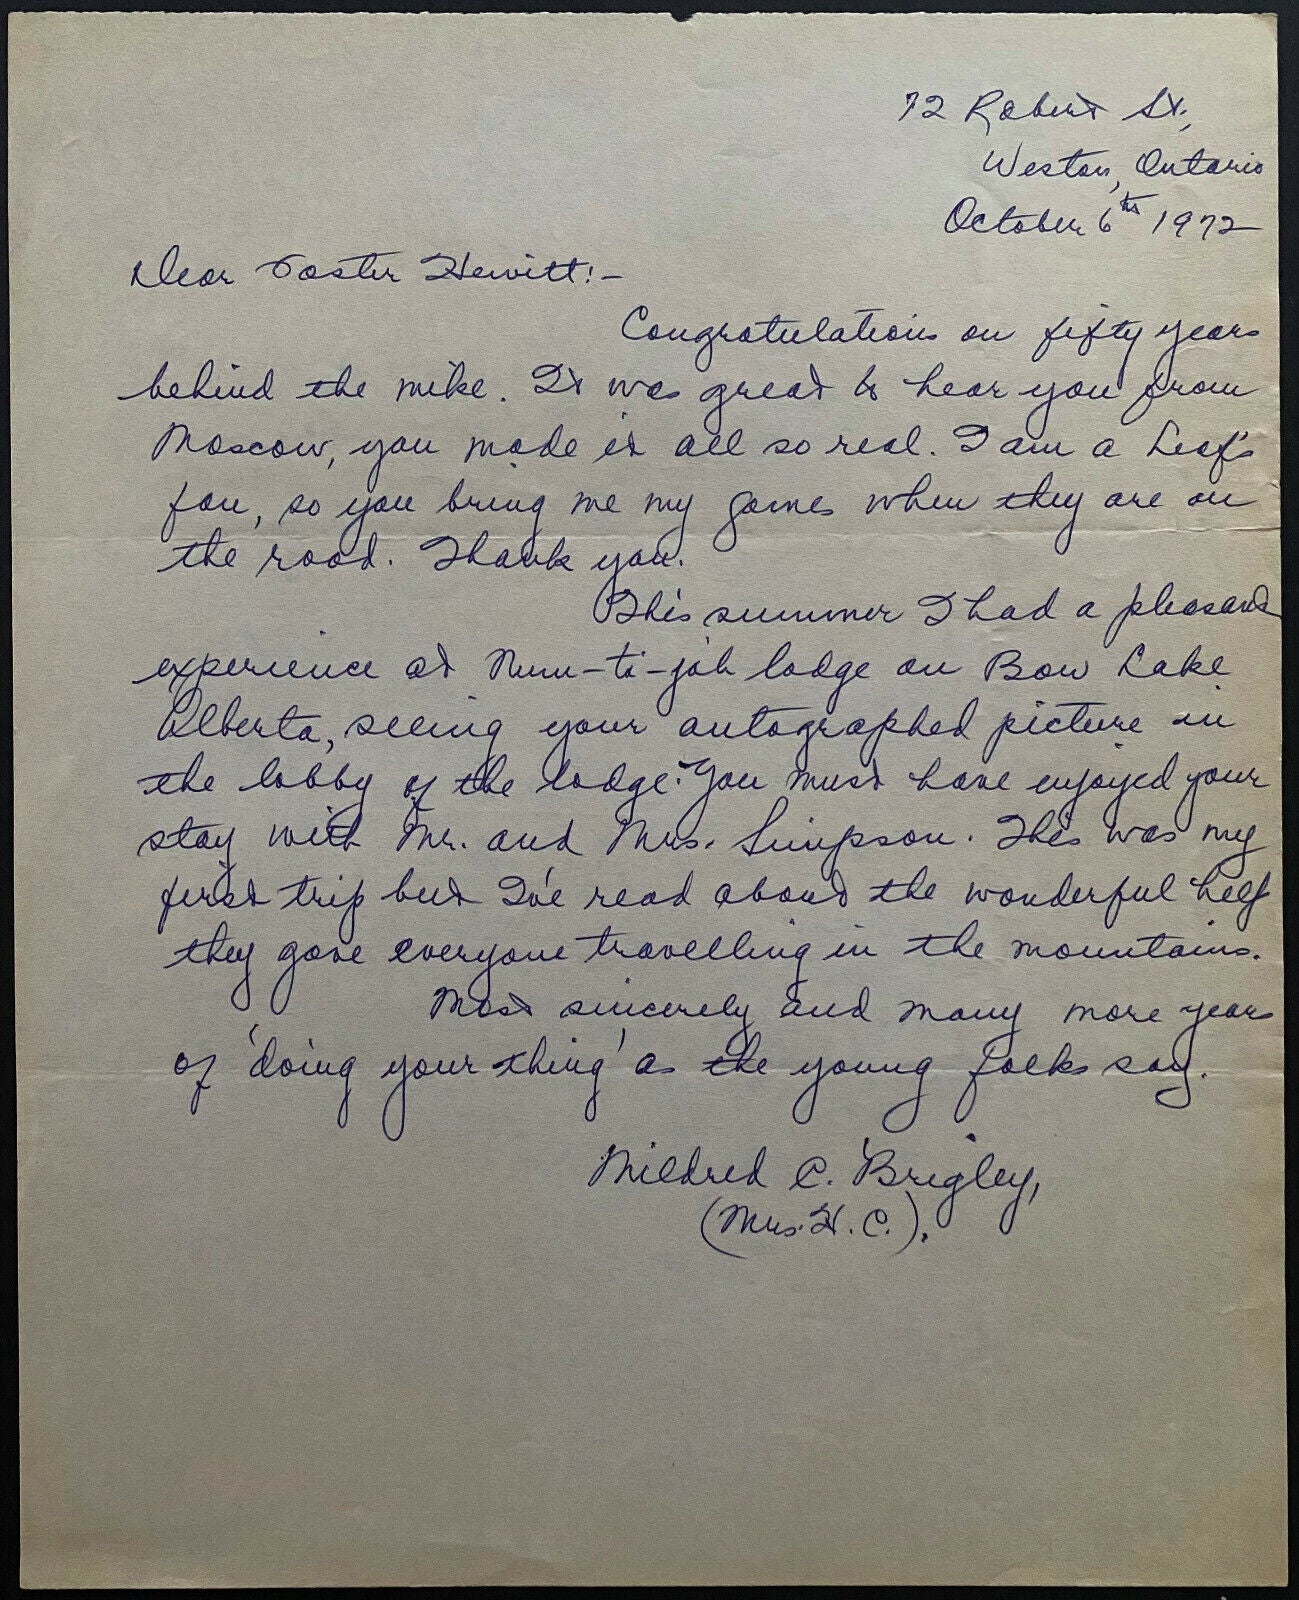 72 Robert St.,
Weston, Ontario
October 6th 1972
Dear Foster Hewitt:-
Congratulations on fifty years
behind the mike. It was great to hear you from
Moscow, you made it all so real. I am a Leaf's
fan, so you bring me my games when they are on
the road. Thank you.
This summer I had a pleasant
experience at Num-ti-jah lodge on Bow Lake
Alberta, seeing your autographed picture in
the lobby of the lodge. You must have enjoyed your
stay with Mr. and Mrs. Simpson. This was my
first trip but I've read about the wonderful help
they gave everyone travelling in the mountains.
Most sincerely and many more years
of 'doing your thing' as the young folks say.
Mildred C. Brigley,
(Mrs. H. C.).